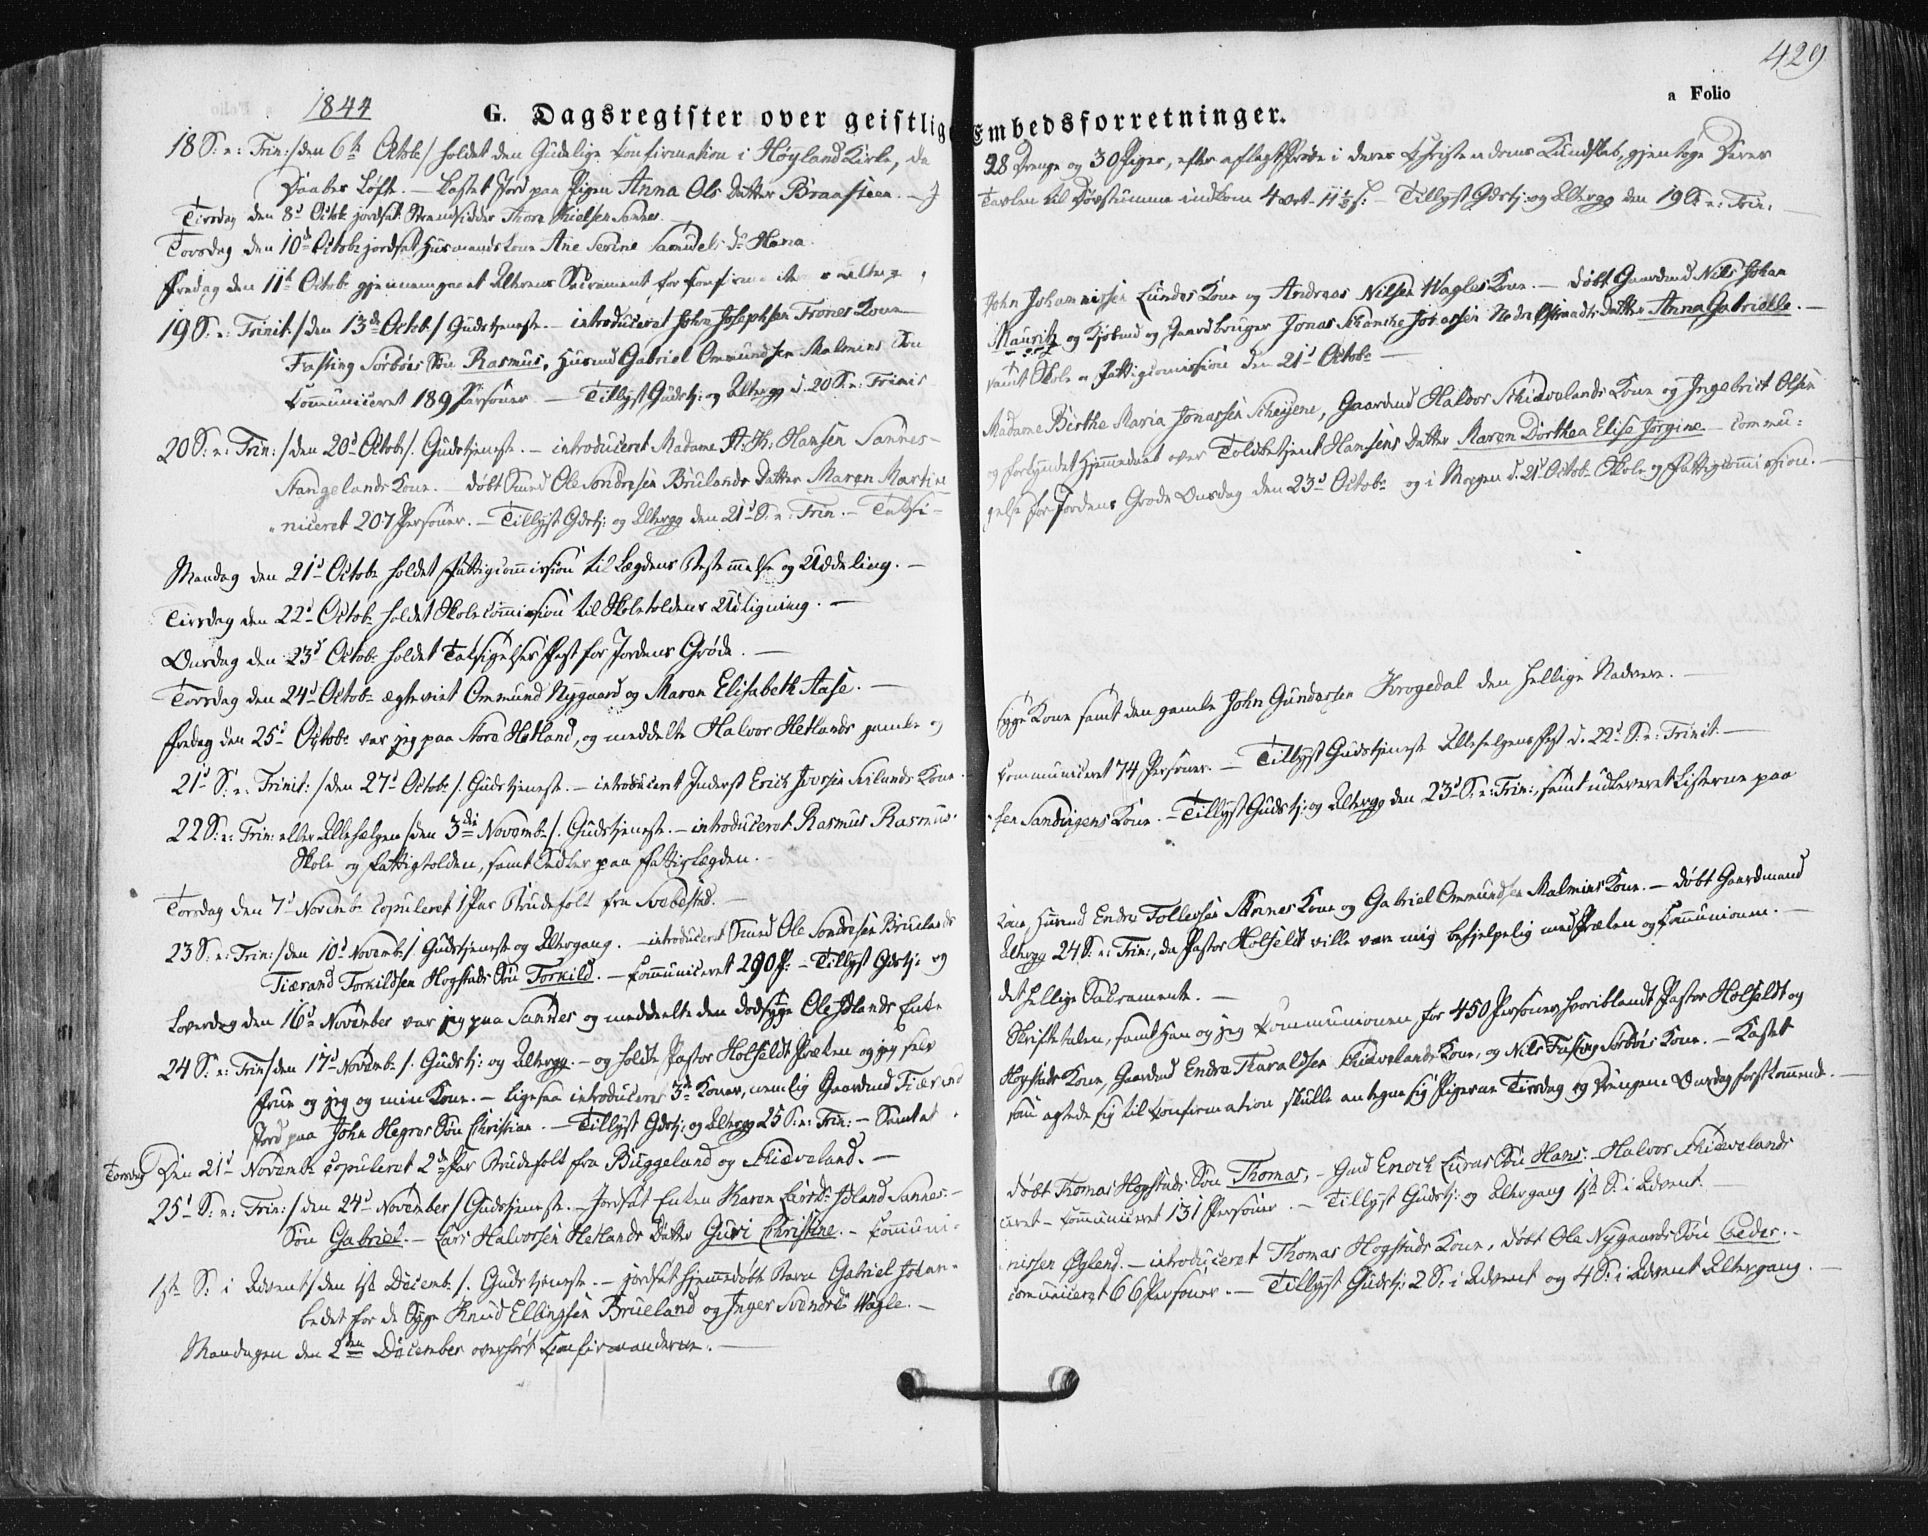 429
a Folio
1844
G. Dagsregister over geistlige Embedsforretninger.
18 S: e: Trin: /den 6te Octob:/ holdt den Gudelige Confirmation i Høyland Kirke, da 28 Drenge og 30 Piger, efter aflagt Prøve i deres Christendoms Kundskab, gjentoge Deres
Daabes Løfte. – Kastet Jord paa Pigen Anna Ols Datter Braasteen. – I Tavlen til Døvstumme indkom 4 ort 11½ s: – Tillyst Gdstj: og Altergg den 19 S: e: Trin:
Tirsdag den 8de Octob: jordsat Strandsidder Thore Nielsen Sannes
Torsdag den 10de Octob: jordsat Husmandskone Ane Serine Samuels D: Hana.
Fredag den 11te Octob: gjennemgaaet Alterens Sacrament for
19 S: e: Trinit: /den 13de Octob:/ Gudstjeneste. – introduceret John Josephsen Trones Kone John Johannissen Lundes Kone og Andreas Nilsen Wagles Kone. – døbt Gaardmd Nils Johan
Fasting Sørbøes Søn Rasmus, Husmd Gabriel Ommundsen Malmins Søn Mauritz og Kjøbmd og Gaardbruger Jonas Schanche Jonassen Nedre Øsraadts Datter Anna Gabrielle. –
Communiceret 189 Personer – Tillyst Gudstj: og Altergg d. 20 S: e: Trinit samt Skole- og Fattigcommission den 21de Octob: –
20 S: e: Trin: /den 20de Octob:/ Gudstjeneste. – introduceret Madame A. Th. Hansen Sannes – Madame Birthe Maria Jonassen Scheijene, Gaardmd Haldor Schiævelands Kone og Ingebrict Olsen
Stangelands Kone. – døbt Smed Ole Sondresen Brulands Datter Maren Martine og forkyndet Hjemmedaab over Toldbetjent Hansens Datter Maren Dorthea Elise Jørgine. – Commu:
niceret 207 Personer. – Tillyst Gdstj: og Altergg den 21de S: e: Trin. – Taksi- gelse for Jordens Grøde Onsdag den 23de Octob: og i Morgen d. 21de Octob: Skole og Fattigcommission. –
Mandag den 21de Octob: holdt Fattigcommission til Lægdens Bestemmelse og Uddeling. –
Tirsdag den 22de Octob: holdt Skolecommission til Skoletoldens Udligning. –
Onsdag den 23de Octob: holdt Taksigelses Fest for Jordens Grøde. –
Torsdag den 24de Octob: ægteviet Ommund Nygaard og Maren Elisabeth Aase. –
Fredag den 25de Octob: var jeg paa Store Hetland, og meddelte Halvor Hetlands gamle og syge Kone samt den gamle John Gundersen Krogedal den hellige Nadvere. –
21de S: e: Trinit: /den 27de Octob:/ Gudstjeneste. – introduceret Inderst Erich Iversen Kone. Communiceret 74 Personer. – Tillyst Gudstjeneste Allehelgens Fest d. 22de S: e: Trinit. –
22 S: e: Trin: eller Allehelgen /den 3die Novemb:/ Gudstjeneste. – introduceret Rasmus Rasmus- sen Sandvigens Kone. – Tillyst Gudstj: og Altergg den 23de S: e: Trin:, samt udleveret Listerne paa
Skole og Fattigtolden, samt Sedler paa Fattiglægden. –
Torsdag den 7de Novemb: copuleret 1 Par Brudefolk fra Svebestad. –
23 S: e: Trin: /den 10de Novemb:/ Gudstjeneste og Altergang. – introduceret Smed Ole Sondresen Bruelands Kone, Husmd Endre Tollevsen Sannes Kone og Gabriel Ommundsen Malmins Kone. – døbt Gaardmand
Tiærand Torkildsen Hogstads Søn Torkild. – Communiceret 290 P: – Tillyst Gdstj: og Altergg 24 S: e: Trin:, da Pastor Holfeldt ville være mig behjelpelig med Præken og Communionen. –
Løverdag den 16de November var jeg paa Sannes og meddeelte den dødsyge Ole Idlands Enke det hellige Sacramente. –
24 S: e: Trin /den 17de Novemb:/ Gudstj: og Altergg. – og holdte Pastor Holfeldt Præken og jeg selv Skriftetalen, samt han og jeg Communionen for 450 Personer, hvoriblandt Pastor Holfeldt og
Frue og jeg og min Kone. – Ligesaa introduceret 3de Koner, nemlig Gaardmd Tiærand Hogstads Kone, Gaardmd Endre Tharaldsen Schiævelands Kone, og Nils Fasting Sørbøes Kone. – Kastet
Jord paa John Hegres Søn Christian. – Tillyst Gdstj: og Altergg 25 S: e: Trin: – Samt at som agtede sig til Confirmation skulle antegne sig Pigerne Tirsdag og Drengene Onsdag førstkommende. –
Torsdag Den 21de Novemb: copuleret 2de Par Brudefolk fra Buggeland og Schiæveland. –
25de S: e: Trin: /den 24de November/ Gudstjeneste. – Jordsat Enken Karen Lars D: Idland Sannes. – døbt Thomas Hogstads Søn Thomas, – Gmd Enoch Luras Søn Hans. – Halvor Schiævelands
Søn Gabriel. – Lars Halvorsen Hetlands Datter Guri Christine. – Communi- ceret – Communiceret 131 Personer. – Tillyst Gudstj: og Altergang 1ste S: i Advent. –
1ste S: i Advent /den 1ste Decemb:/ Gudstjeneste. – jordsat hjemmedøbt Barn Gabriel Johan- nissen Øglend. – introduceret Thomas Hogstads Kone, døbt Ole Nygaards Søn Peder. –
bedet for de Syge Knud Ellingsen Brueland og Inger Svends D: Wagle. – communiceret 66 Personer. – Tillyst Gudstj: 2 S: i Advent og 4 S: i Advent Altergang. –
Mandagen den 2den December overhørt Confirmanderne. –